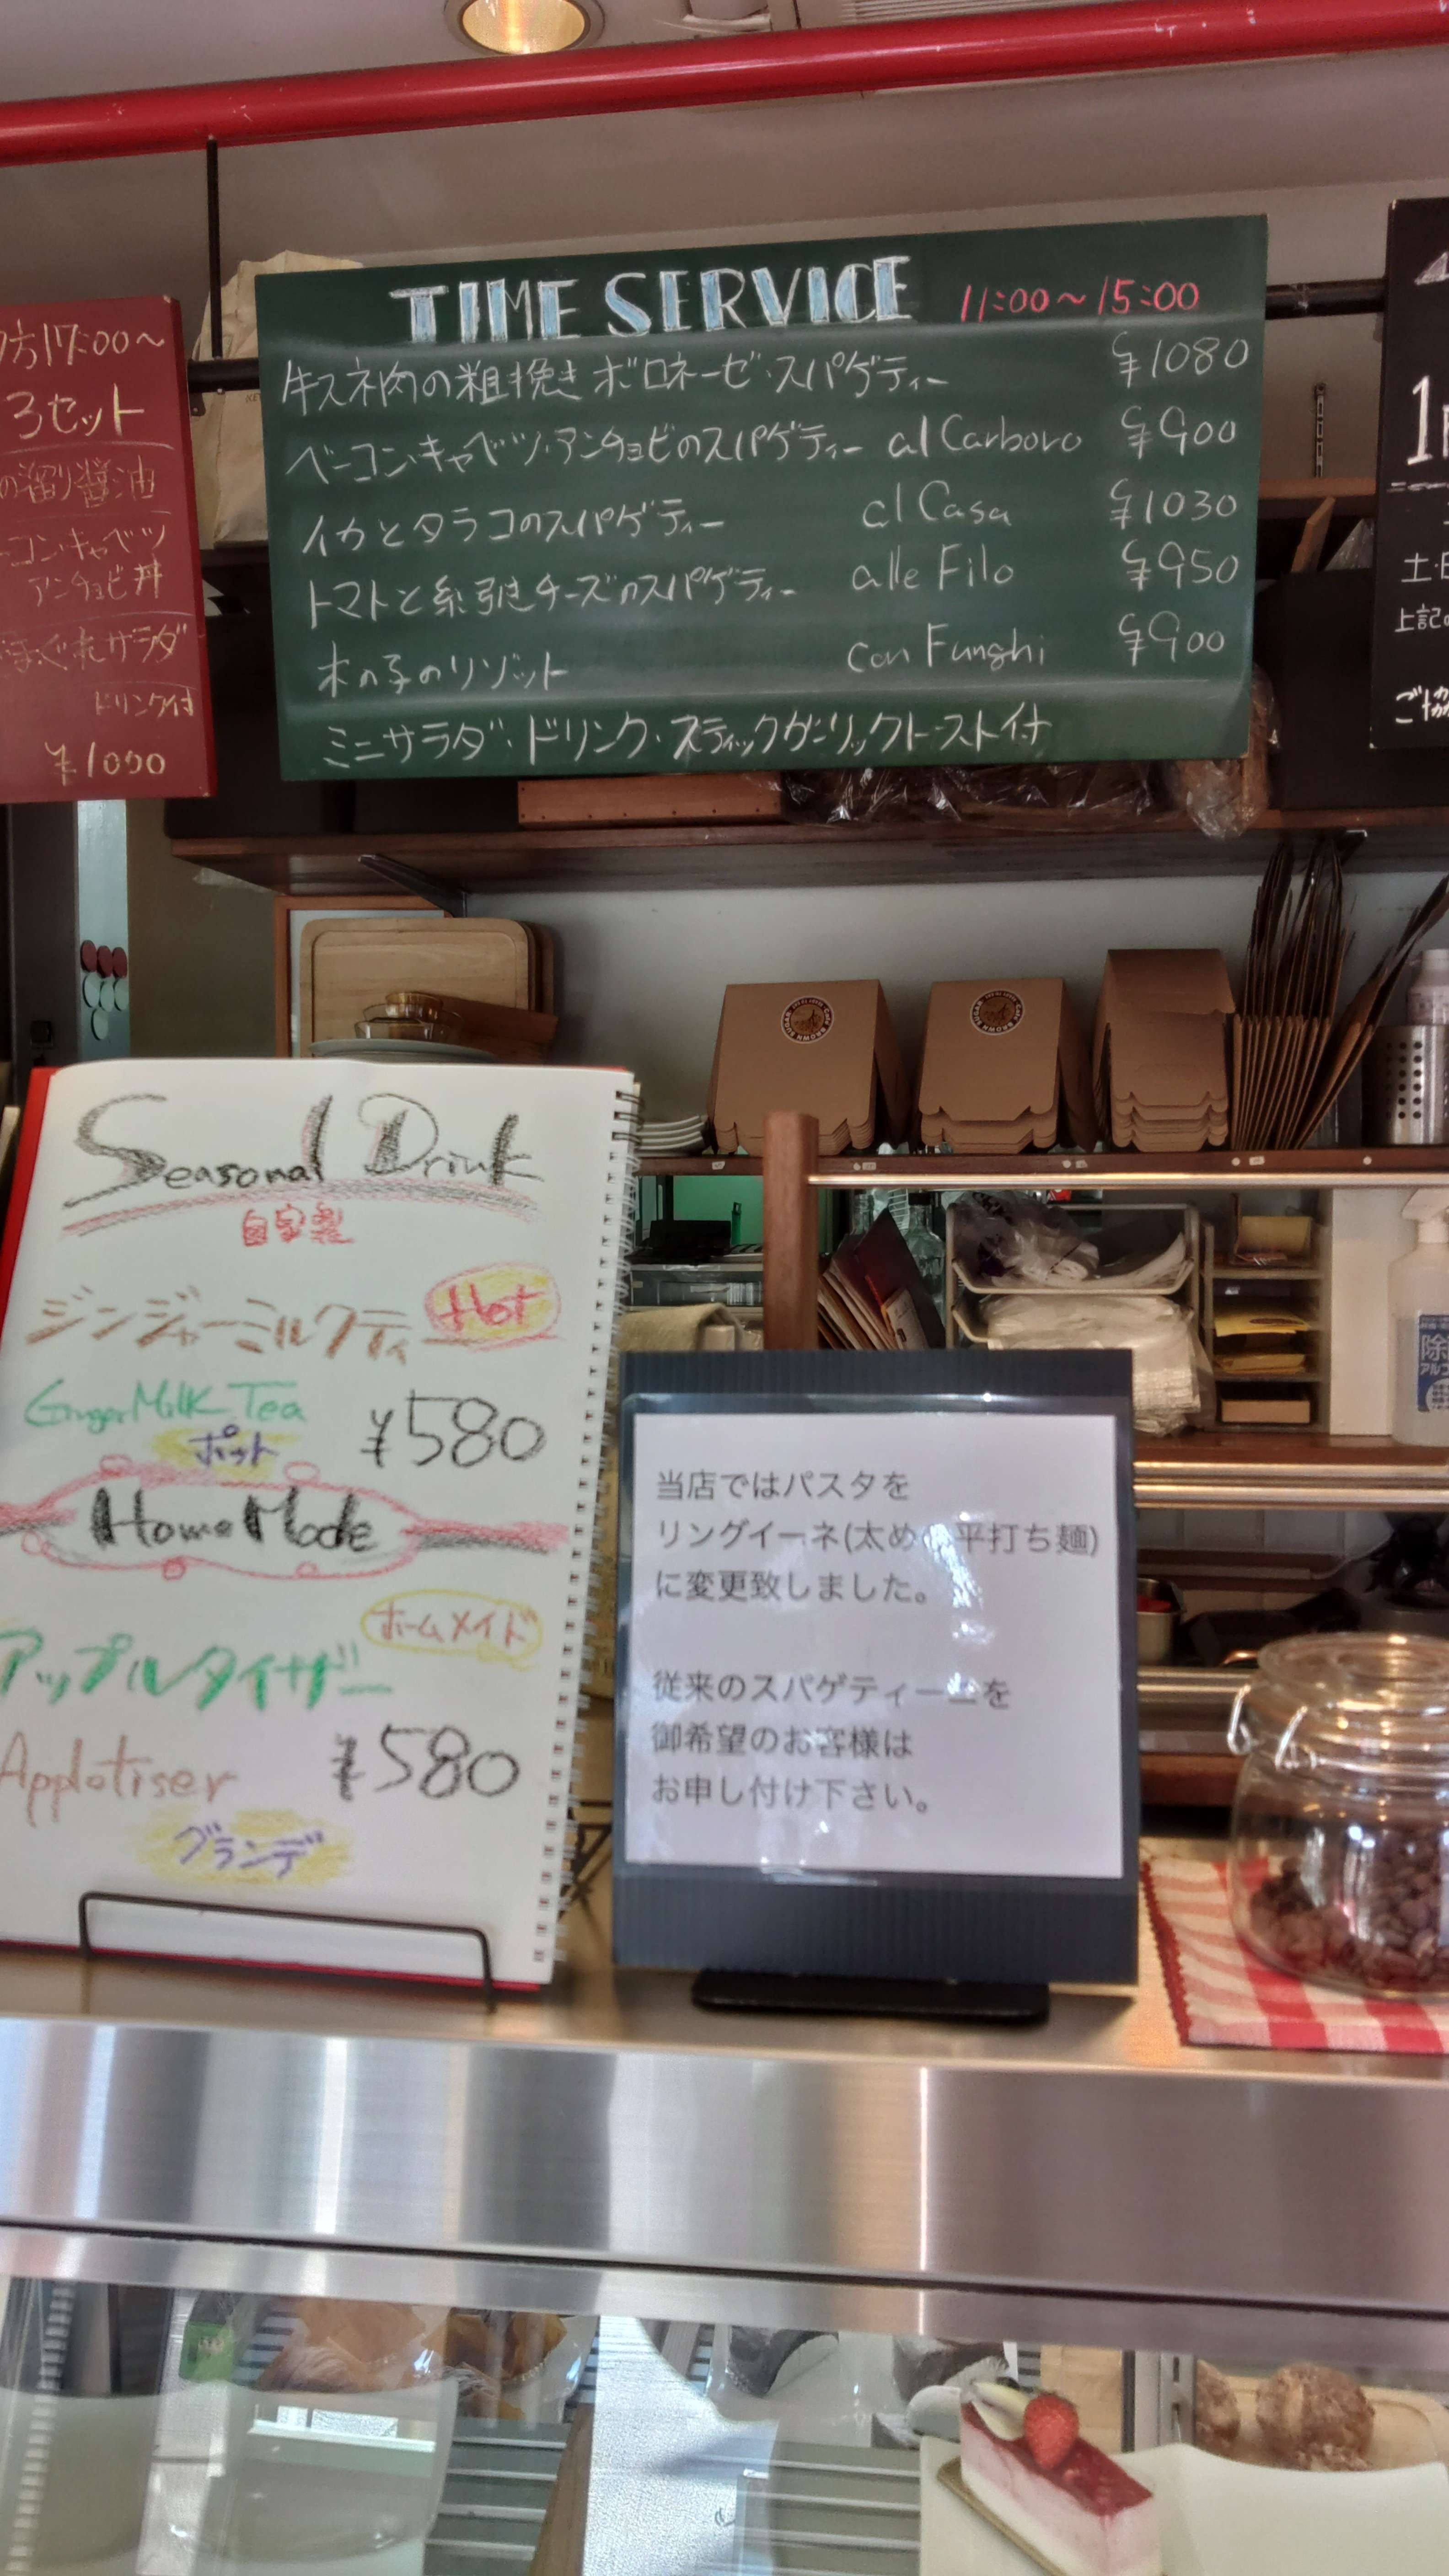 TIME SERVICE 11:00〜15:00
牛スネ肉の粗挽きボロネーゼ・スパゲティー ¥1080
ベーコン・キャベツ・アンチョビのスパゲティー al Carboro ¥900
イカとタラコのスパゲティー al Casa ¥1030
トマトと糸引きチーズのスパゲティー alle Filo ¥950
木の子のリゾット con Funghi ¥900
ミニサラダ・ドリンク・スティックガーリックトースト付
17:00〜
3セット
の溜り醤油
コン・キャベツ
アンチョビ丼
まぐれサラダ
ドリンク付
¥1000
土・日
上記の
Seasonal Drink
自家製
ジンジャーミルクティー Hot
Ginger Milk Tea
ポット ¥580
Home Made
ホームメイド
アップルタイザー
Appletiser ¥580
グランデ
当店ではパスタを
リングイーネ(太め 平打ち麺)
に変更致しました。
従来のスパゲティーニを
御希望のお客様は
お申し付け下さい。
BROWN SUGAR
除
アルコ